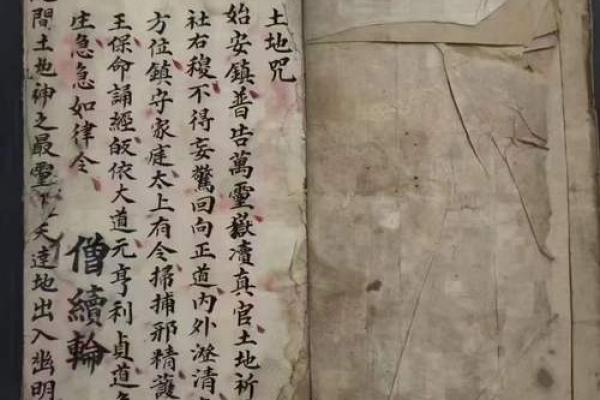 土地咒
始安鎮普告萬靈嶽瀆真官土地祈
社右稷不得妄驚回向正道內外澄清
方位鎮守家庭太上有令掃捕邪精護
王保命誦經皈依大道元亨利貞道
庄急急如律令
僧續輪
間土地神之最靈天達地出入幽明